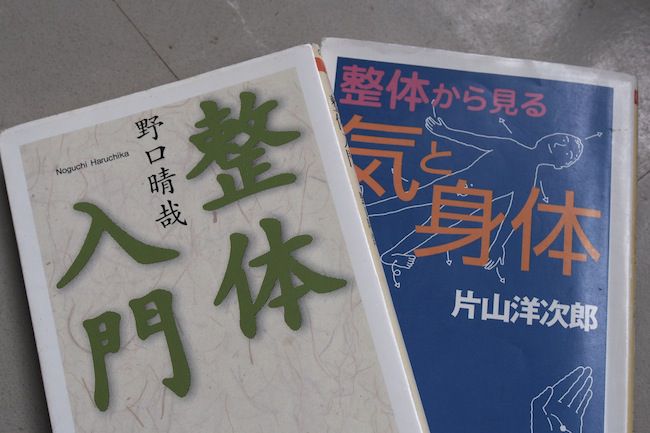 整体
入門
野口晴哉
Noguchi Haruchika
整体から見る
気と
身体
片山洋次郎